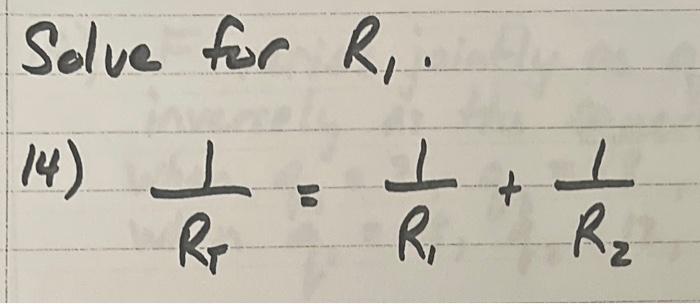 Solve for R₁.
14) 1/R_T = 1/R₁ + 1/R₂